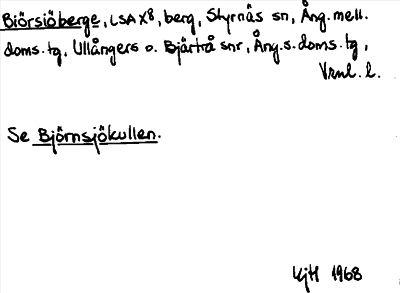 Biörsiöberge, LSA X8, berg, Styrnäs sn, Ång. mell.
doms. tg, Ullångers o. Bjärtrå snr, Ång. s. doms. tg,
Vrnl. l.
Se Björnsjökullen.
KjH 1968